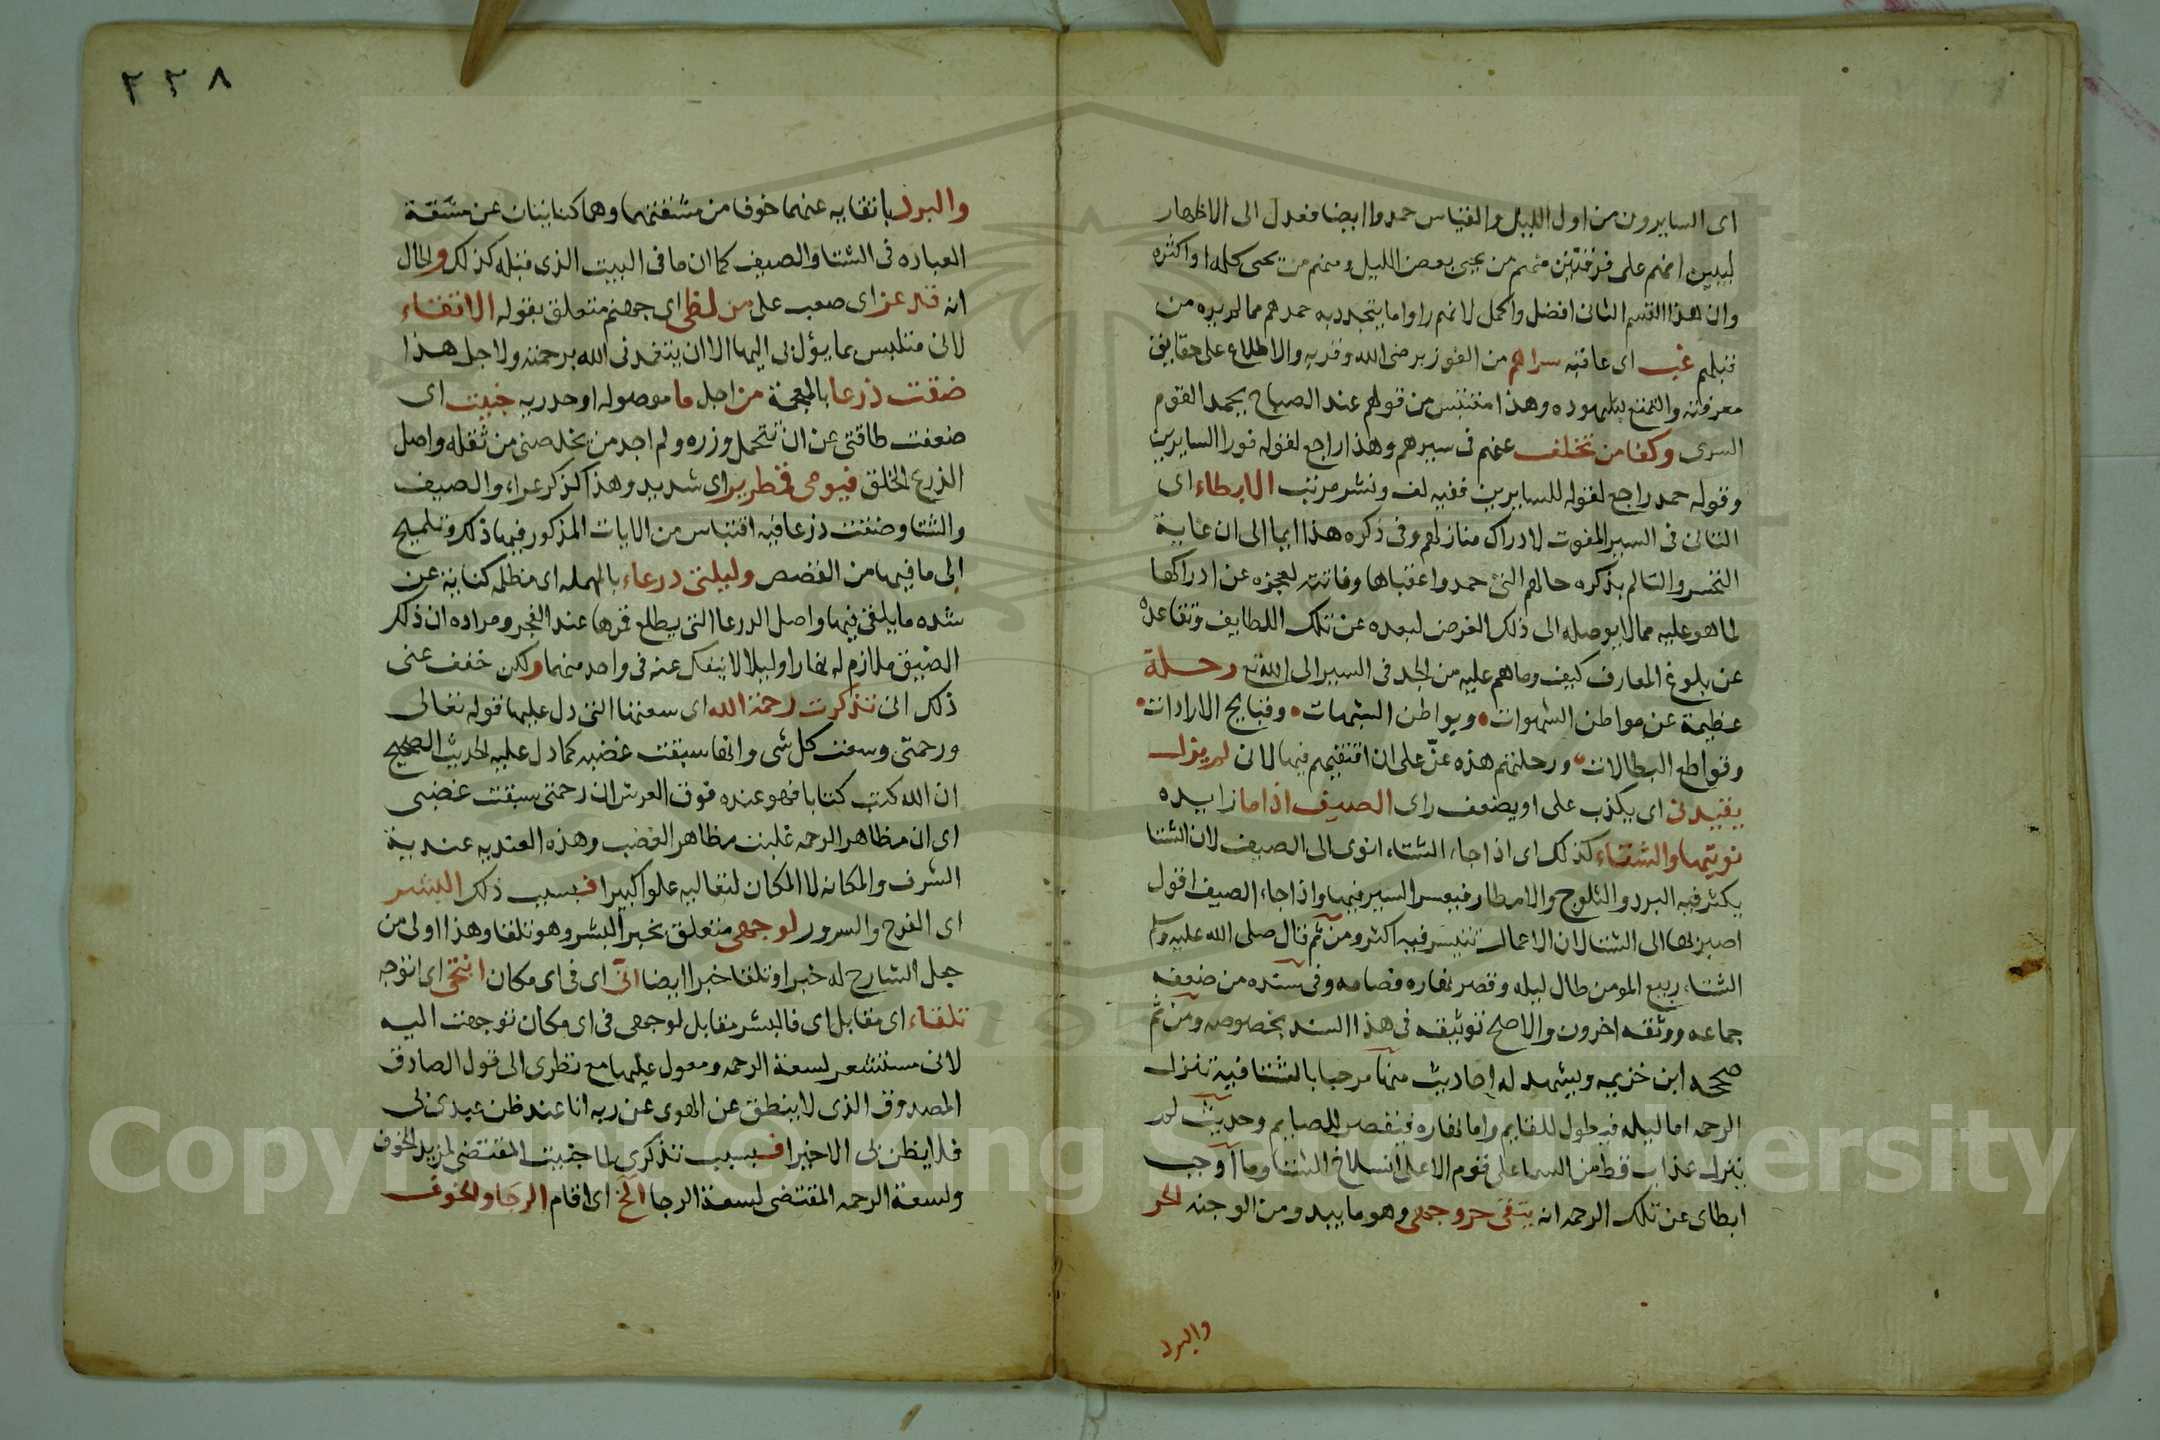 اى السايرون من اول الليل والقياس حمدوا ايضا فعدل الى الاظهار
ليبين انهم على فرقتين منهم من يحيى بعض الليل ومنهم من يحيى كله او اكثره
وان هذا القسم الثانى افضل واكمل لانهم راوا ما يتجدد به حمدهم مما لم يره من
قبلهم غب اى عاقبه سراهم من الفوز برضى الله وقربه والاطلاع على حقايق
معرفته والتمتع بشهوده وهذا مقتبس من قولهم عند الصباح يحمد القوم
السرى وكفا من تخلف عنهم فى سيرهم وهذا راجع لقوله فورا السايرين
وقوله حمد راجع لقوله للسايرين ففيه لف ونشر مرتب الابطاء اى
التانى فى السير المفوت لادراك منازلهم وفى ذكره هذا ايما الى ان غاية
التحسر والتالم بذكره حالهم التى حمدوا عقباها وفاتته لعجزه عن ادراكها
لما هو عليه مما لا يوصله الى ذلك الغرض لبعده عن تلك اللطايف وتقاعده
عن بلوغ المعارف كيف وما هم عليه من الجد فى السير الى الله تع رحلة
عظيمة عن مواطن الشهوات وبواطن الشبهات وقبايح الارادات
وقواطع البطالات ورحلتهم هذه عزّ على ان اقتفيهم فيها لانى لم يزل
يفندنى اى يكذب على او يضعف راى الصيف اذا ما زايده
نويتها والشتاء كذلك اى اذا جاء الشتاء انوى الى الصيف لان الشتا
يكثر فيه البرد والثلوج والامطار فيعسر السير فيها واذا جاء الصيف اقول
اصبر بها الى الشتا لان الاعمال تتيسر فيه اكثر ومن ثم قال صلى الله عليه وسلم
الشتاء ربيع المومن طال ليله وقصر نهاره فصامه وفى سنده من ضعفه
جماعه ووثقه اخرون والاصح توثيقه فى هذا السند بخصوصه ومن ثم
صححه ابن خزيمه ويشهد له احاديث منها مرحبا بالشتا فيه تنزل
الرحمه اما ليله فيطول للقايم واما نهاره فيقصر للصايم وحديث لم
ينزل عذاب قط من السما على قوم الا على انسلاخ الشتا وما اوجب
ابطاى عن تلك الرحمه انه يتقى حر وجهى وهو ما يبدو من الوجنه الحر
والبرد
٢٣٨
والبرد باتقايه عنهما خوفا من مشقتهما وهما كنايتان عن مشقة
العباده فى الشتا والصيف كما ان ما فى البيت الذى قبله كذلك والحال
انه قد عز اى صعب على من لظى اى جهنم متعلق بقوله الاتقاء
لانى متلبس بما يؤل بى اليها الا ان يتغمدنى الله برحمته ولاجل هذا
ضقت ذرعا بالمعجمة من اجل ما موصوله او مصدريه جنيت اى
ضعفت طاقتى عن ان تتحمل وزره ولم اجد من يخلصنى من ثقله واصل
الذرع الخلق فيومى قمطرير اى شديد وهذا كذكر عراء والصيف
والشتا وضقت ذرعا فيه اقتباس من الايات المذكور فيها ذلك وتلميح
الى ما فيها من القصص وليلتى درعاء بالمهمله اى مظلمه كناية عن
شده ما يلقى فيها واصل الدرعا التى يطلع قمرها عند الفجر ومراده ان ذلك
الضيق ملازم له نهارا وليلا لا ينفك عنه فى واحد منهما ولكن خفف عنى
ذلك انى تذكرت رحمة الله اى سعتها التى دل عليها قوله تعالى
ورحمتى وسعت كل شى وانها سبقت غضبه كما دل عليه الحديث الصحيح
ان الله كتب كتابا فهو عنده فوق العرش ان رحمتى سبقت غضبى
اى ان مظاهر الرحمه غلبت مظاهر الغضب وهذه العنديه عندية
الشرف والمكانه لا المكان لتعاليه علوا كبيرا فبسبب ذلك البشر
اى الفرح والسرور لوجهى متعلق بخبر البشر وهو تلقا وهذا اولى من
جعل الشارح له خبرا وتلقا خبرا ايضا انّى اى فى اى مكان انتحى اى اتوجه
تلقاء اى مقابل اى فالبشر مقابل لوجهى فى اى مكان توجهت اليه
لانى مستشعر لسعة الرحمه ومعول عليها مع نظرى الى قول الصادق
المصدوق الذى لا ينطق عن الهوى عن ربه انا عند ظن عبدى بى
فلا يظن بى الا خيرا فبسبب تذكرى لما جنيت المقتضى لمزيد الخوف
ولسعة الرحمه المقتضى لسعة الرجا الحّ اى اقام الرجا والخوف